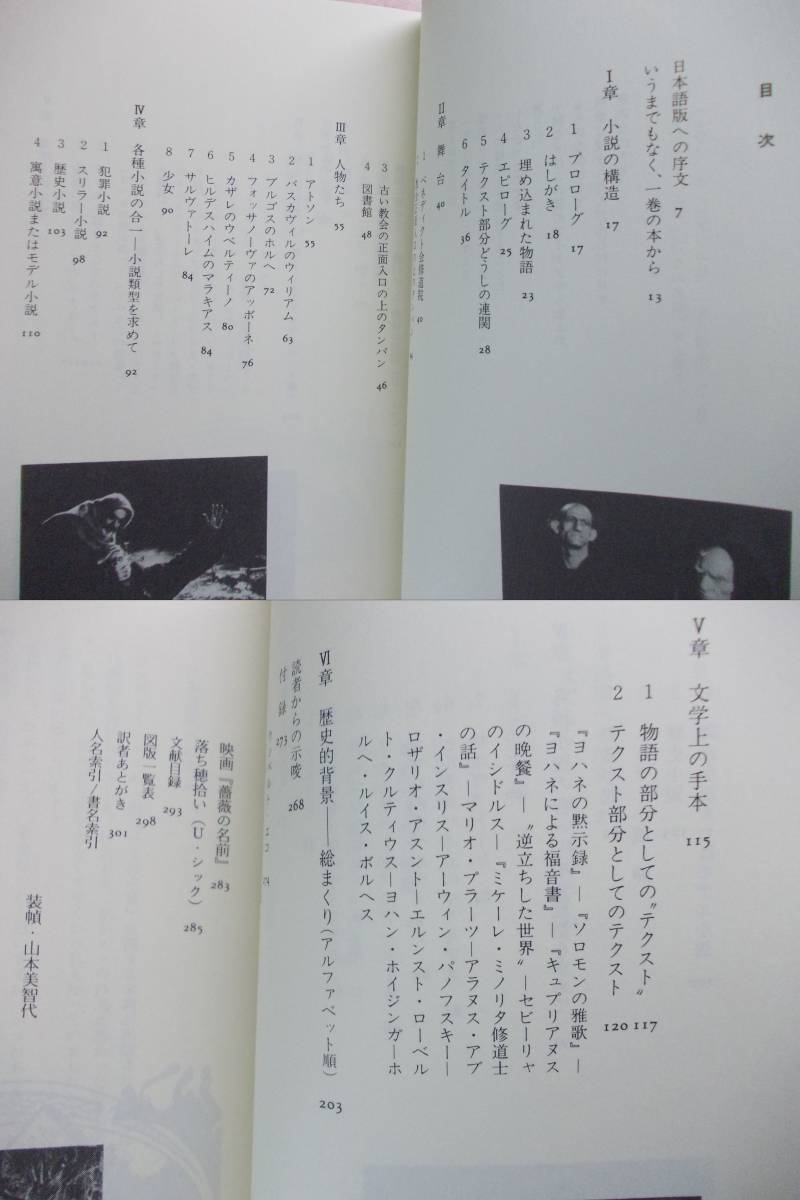 目次
日本語版への序文 7
いうまでもなく、一巻の本から 13
Ⅰ章 小説の構造 17
1 プロローグ 17
2 はしがき 18
3 埋め込まれた物語 23
4 エピローグ 25
5 テクスト部分どうしの連関 28
6 タイトル 36
Ⅱ章 舞台 40
1 ベネディクト会修道院 40
3 古い教会の正面入口の上のタンパン 46
4 図書館 48
Ⅲ章 人物たち 55
1 アトソン 55
2 バスカヴィルのウィリアム 63
3 ブルゴスのホルヘ 72
4 フォッサノーヴァのアッボーネ 76
5 カザレのウベルティーノ 80
6 ヒルデスハイムのマラキアス 84
7 サルヴァトーレ 84
8 少女 90
Ⅳ章 各種小説の合一―小説類型を求めて 92
1 犯罪小説 92
2 スリラー小説 98
3 歴史小説 103
4 寓意小説またはモデル小説 110
Ⅴ章 文学上の手本 115
1 物語の部分としての〝テクスト〟 117
2 テクスト部分としてのテクスト 120
『ヨハネの黙示録』―『ソロモンの雅歌』―
『ヨハネによる福音書』―『キュプリアヌス
の晩餐』―〝逆立ちした世界〟―セビーリャ
のイシドルス―『ミケーレ・ミノリタ修道士
の話』―マリオ・プラーツ―アラヌス・アブ
・インスリス―アーウィン・パノフスキー―
ロザリオ・アスント―エルンスト・ローベル
ト・クルティウス―ヨハン・ホイジンガ―ホ
ルヘ・ルイス・ボルヘス
Ⅵ章 歴史的背景――総まくり(アルファベット順) 203
読者からの示唆 268
付録 273
映画『薔薇の名前』 283
落ち穂拾い(U・シック) 285
文献目録 293
図版一覧表 298
訳者あとがき 301
人名索引/書名索引
装幀・山本美智代